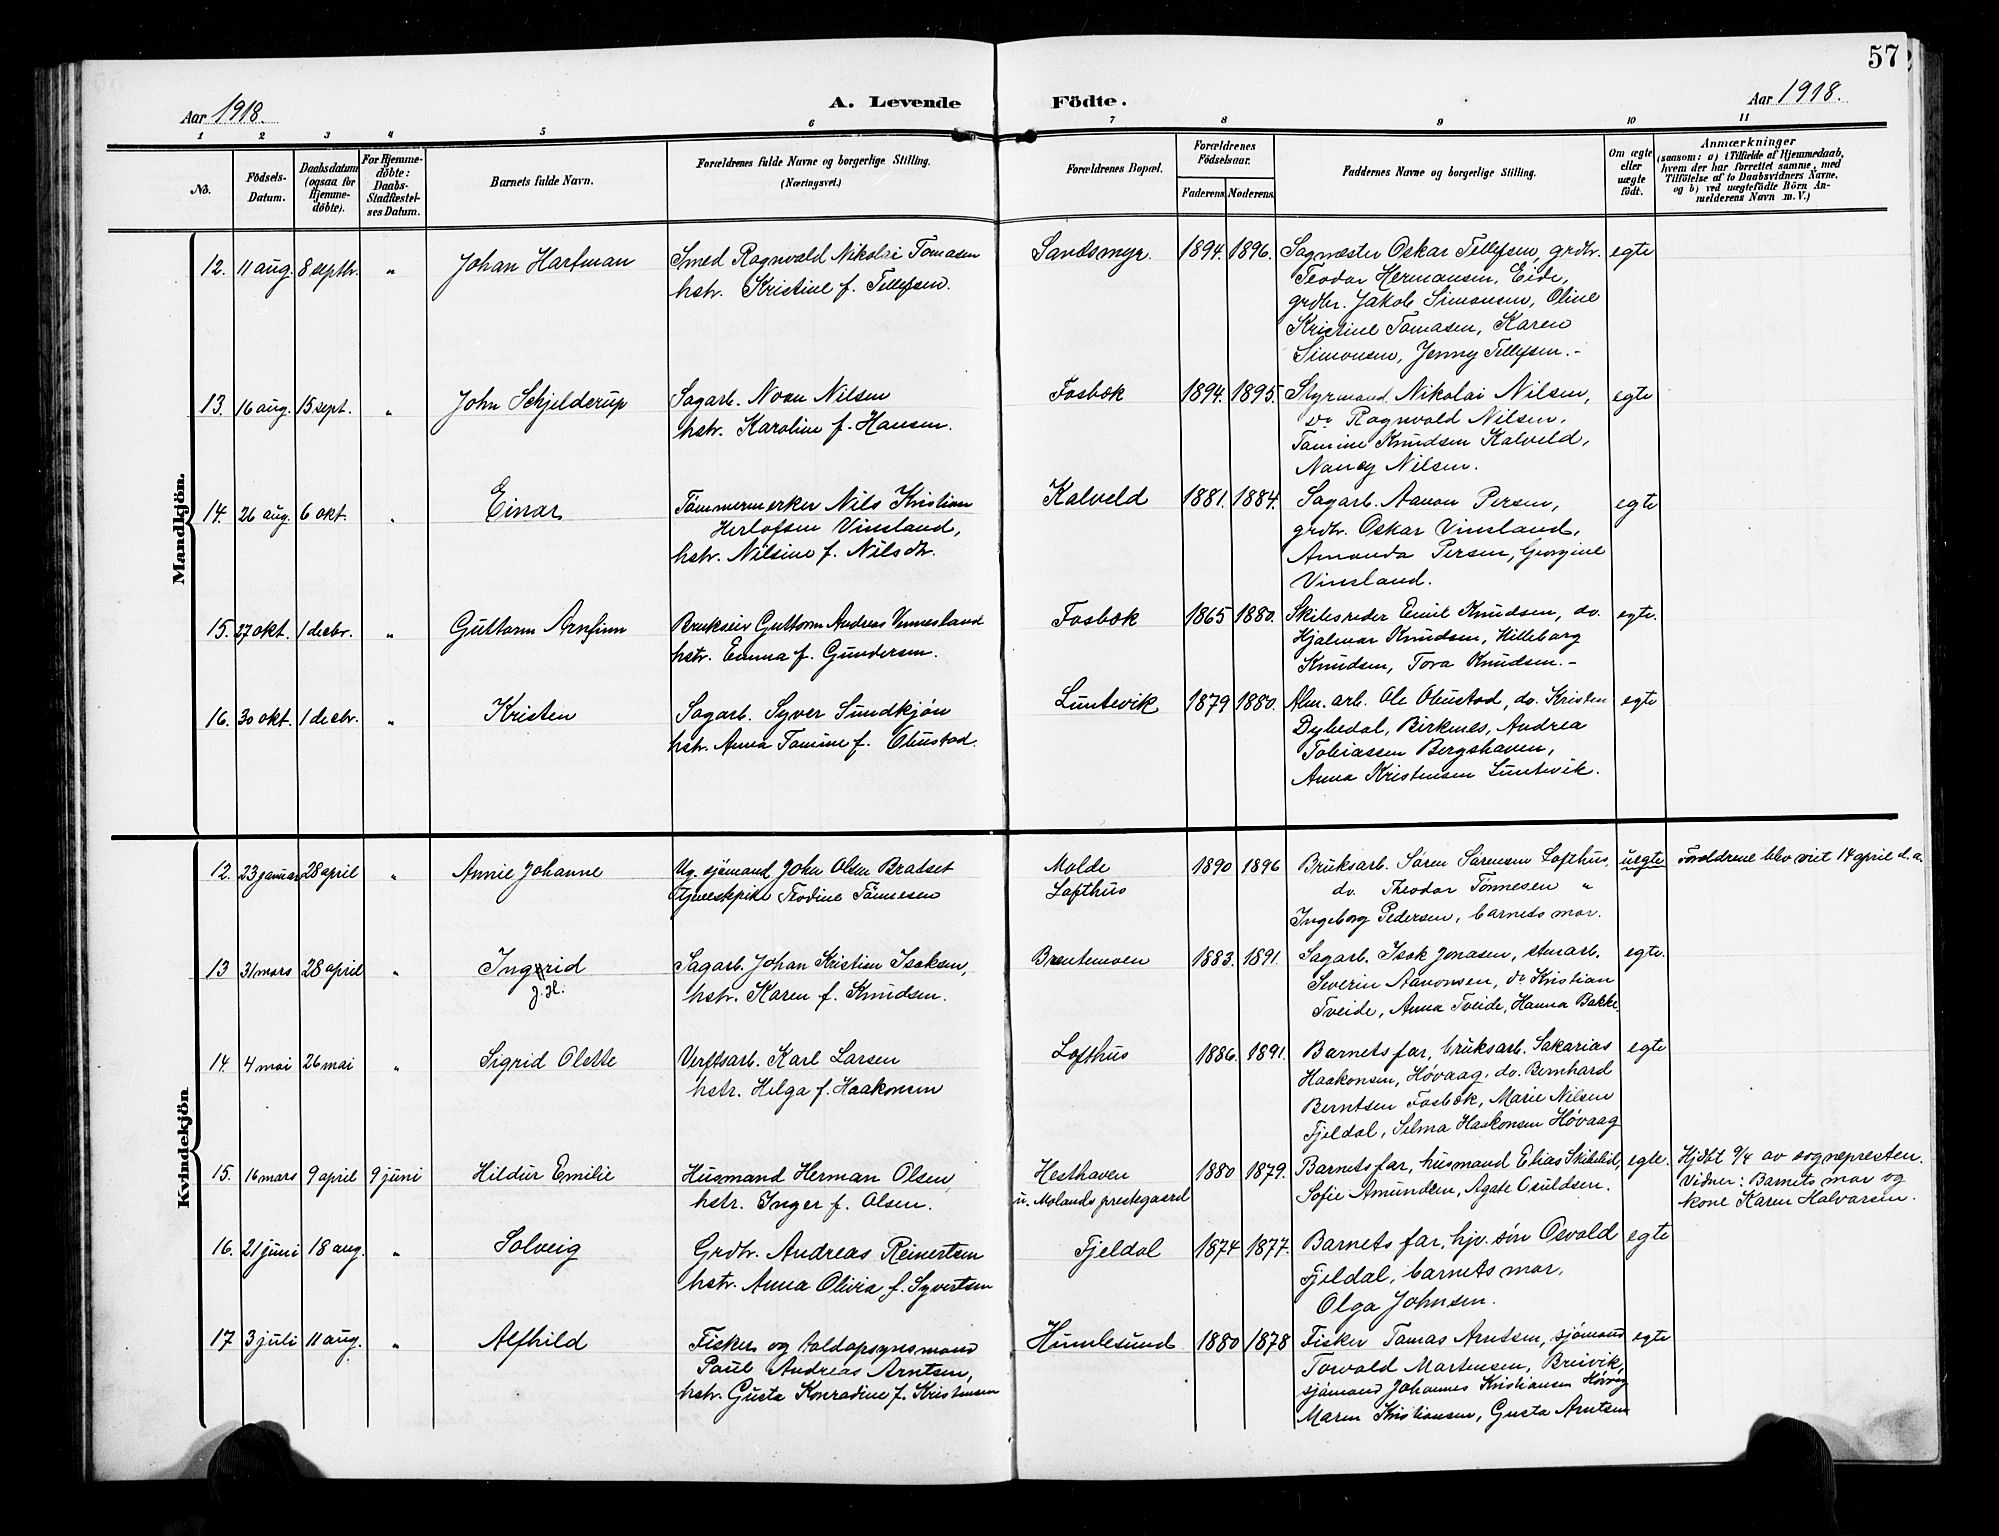 57
Aar 1918.
A. Levende Födte.
Aar 1918.
1 2 3 4 5 6 7 8 9 10 11
No.
Födsels-Datum.
Daabsdatum (ogsaa for Hjemme-döbte).
For Hjemme-döbte: Daabs-Stadfæstel-ses Datum.
Barnets fulde Navn.
Forældrenes fulde Navne og borgerlige Stilling.
(Næringsvei.)
Forældrenes Bopæl.
Forældrenes Födselsaar.
Faderens. Moderens.
Faddernes Navne og borgerlige Stilling.
Om ægte eller uægte födt.
Anmærkninger
(saasom: a) i Tilfælde af Hjemmedaab,
hvem der har forrettet samme, med
Tilföielse af to Daabsvidners Navne,
og b) ved uægtefödte Börn An-
melderens Navn m. V.)
Mandkjön.
12. 11 aug. 8 septbr. " Johan Hartman Smed Ragnvald Nikolai Tomasen Sandsmyr. 1894. 1896. Sagmester Oskar Tellefsen, grdbr. egte
hstr. Kristine f. Tellefsen. Teodor Hermansen, Eide,
grdbr. Jakob Simonsen, Oline
Kristine Tomasen, Karen
Simonsen, Jenny Tellefsen.-
13. 16 aug. 15 sept. " John Schjelderup Sagarb. Noan Nilsen Fosbæk 1894. 1895. Styrmand Nikolai Nilsen, egte
hstr. Karoline f. Hansen. do Ragnvald Nilsen,
Tamine Knudsen Kalveld,
Nancy Nilsen.
14. 26 aug. 6 okt. " Einar Tømmermerker Nils Kristian Kalveld 1881. 1884. Sagarb. Aanon Persen, egte
Herlofsen Vinsland, grdbr. Oskar Vinsland,
hstr. Nilsine f. Nilsdtr. Amanda Persen, Georgine
Vinsland.
15. 27 okt. 1 decbr. " Guttorm Arnfinn Brukseier Guttorm Andreas Vennesland Fosbæk 1865 1880. Skibsreder Emil Knudsen, do. egte.
hstr. Emma f. Gundersen. Hjalmar Knudsen, Hilleborg
Knudsen, Tora Knudsen.-
16. 30 okt. 1 decbr. " Kristen Sagarb. Syver Sundkjön Luntevik 1879 1880. Alm. arb. Ole Omstad, do. Kristen egte
hstr. Anna Tomine f. Omstad. Dybedal, Birknes, Andrea
Tobiassen Bergshaven,
Anna Kristensen Luntevik.
Kvindekjön
12. 23 januar 28 april " Annie Johanne Ug. sjømand John Olsen Bratset Molde 1890 1896 Bruksarb. Sören Sörensen Lofthus, uegte Foreldrene blev viet 14 april d.a.
Tjenestepike Trodine Tönnesen Lofthus do. Theodor Tönnesen "
Ingeborg Pedersen, barnets mor.
13 31 mars 28 april " Ingrid Sagarb. Johan Kristian Isaksen, Brentemoen 1883. 1891. Sagarb. Isak Jonasen, stenarb. egte.
J.H. hstr. Karen f. Knudsen. Severin Aanonsen, do Kristian
Tveide, Anna Tveide, Hanna Bakke.
14. 4 mai 26 mai " Sigrid Olette Verftsarb. Karl Larsen Lofthus 1886. 1891. Barnets far, bruksarb. Sakarias egte
hstr. Helga f. Haakonsen Haakonsen, Høvaag, do. Bernhard
Berntsen Fosbæk, Marie Nilsen
Fjeldal, Selma Haakonsen Høvaag
15. 16 mars 9 april 9 juni Hildur Emilie Husmand Herman Olsen, Hesthaven 1880 1879. Barnets far, husmand Elias Skibelid, egte. Hjdbt 9/4 av sognepresten.
hstr. Inger f. Olsen. u. Molands prestegaard Sofie Amundsen, Agate Osuldsen. Vidner: Barnets mor og
kone Karen Halvorsen.
16. 21 juni 18 aug. " Solveig Grdbr. Andreas Reinertsen Fjeldal 1874 1877. Barnets far, hjv. sön Osvald egte
hstr. Anna Olivia f. Syvertsen Fjeldal, barnets mor,
Olga Johnsen.
17 3 juli 11 aug. " Alfhild Fisker og toldopsynsmand Humlesund 1880 1878 Fisker Tomas Arntsen, sjömand egte
Paul Andreas Arntsen, Torvald Martensen, Breivik,
hstr. Gusta Konradine f. Kristensen sjömand Johannes Kristiansen Høvåg
Maren Kristiansen, Gusta Arntsen